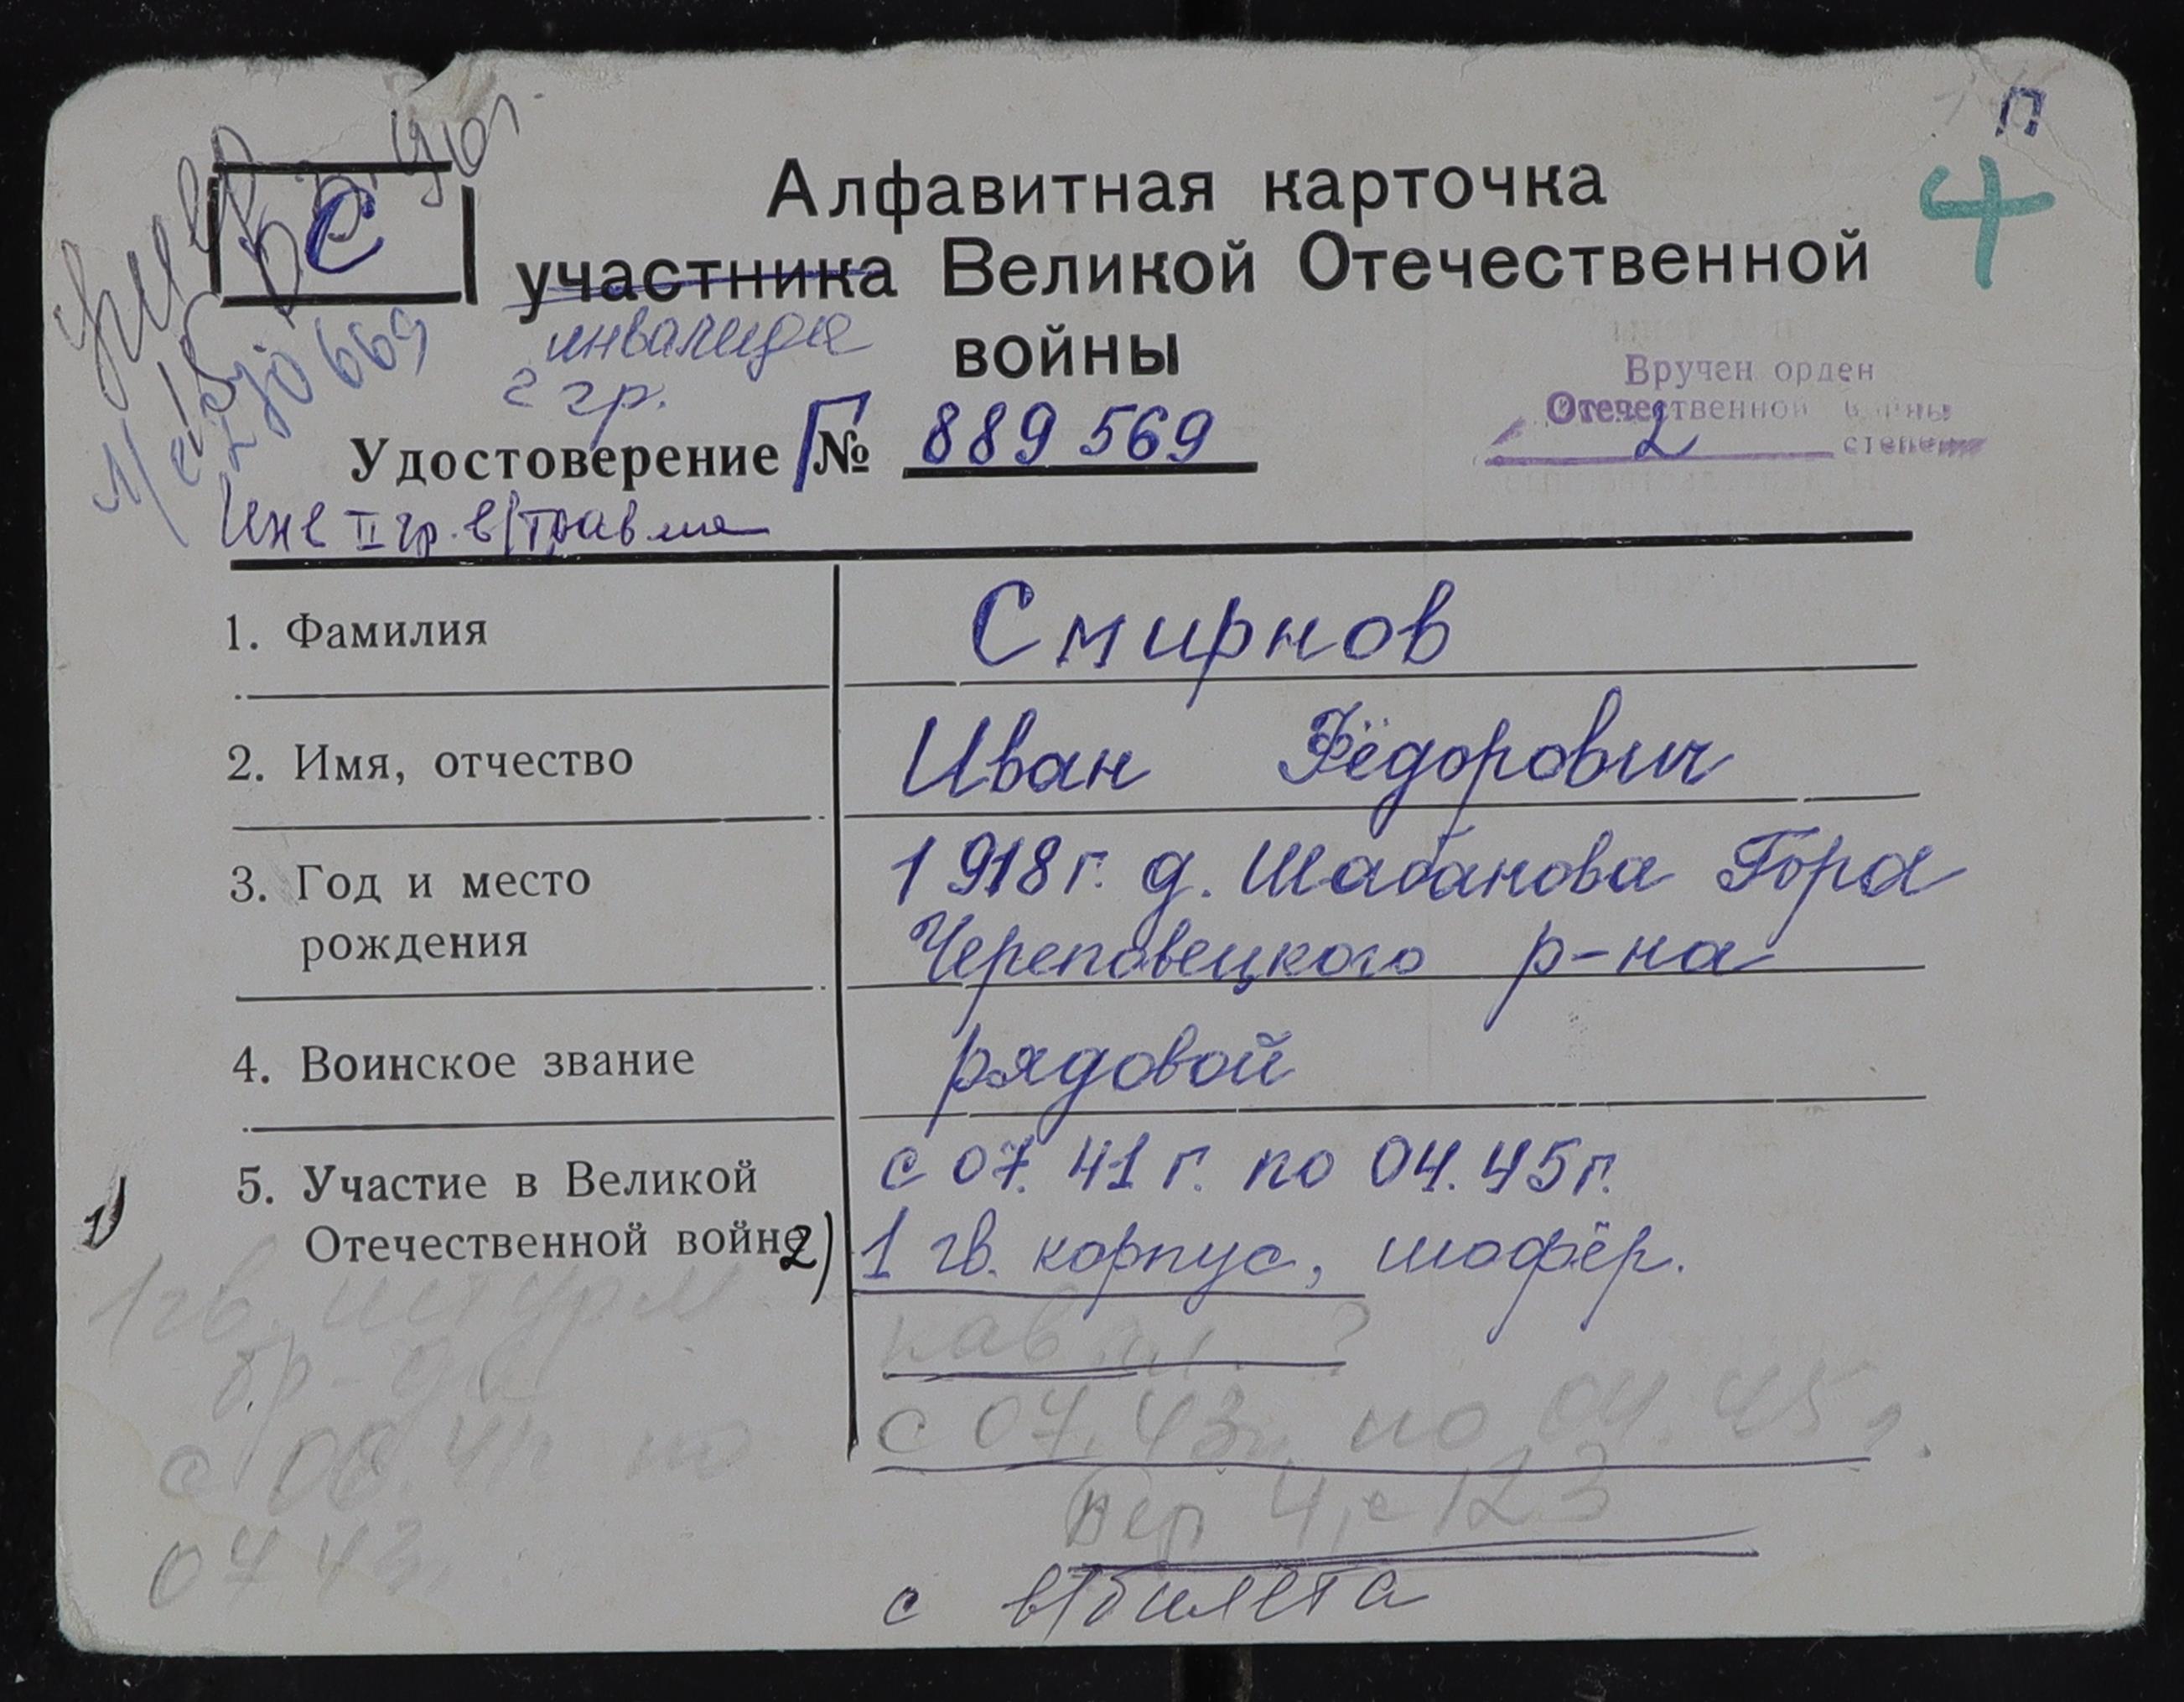 П
С
4
Алфавитная карточка
участника Великой Отечественной
инвалида
войны
2 гр.
Вручен орден
Отечественной войны
2 степени
Удостоверение Г№ 889 569
270669
Инв II гр. в/травма
1. Фамилия Смирнов
2. Имя, отчество Иван Фёдорович
3. Год и место 1918 г. д. Шабанова Гора
рождения Череповецкого р-на
4. Воинское звание рядовой
5. Участие в Великой с 07.41 г. по 04.45 г.
Отечественной войне 2) 1 гв. корпус, шофёр.
1)
1 гв. штурм
бр-да
с 08.41 г. по
07 43 г.
кавал. ?
с 07.43 г. по 04.45 г.
пер 4, с 123
с в/билета